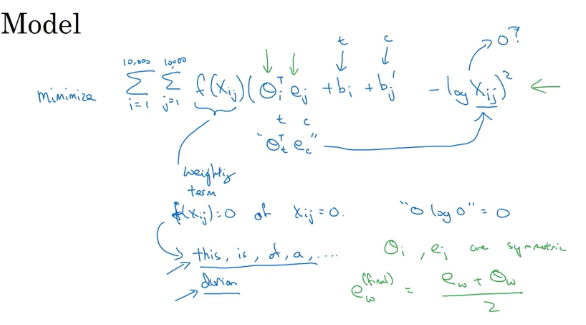 Model
t c 0?
minimize 10,000 Σ i=1 10,000 Σ j=1 f(Xij) (θiᵀ ej + bi + bj' - log Xij)²
t c
"θtᵀ ec"
weighting term
f(Xij)=0 if Xij=0. "0 log 0" = 0
this, is, of, a, .... θi, ej are symmetric
durian
ew^(final) = (ew + θw) / 2